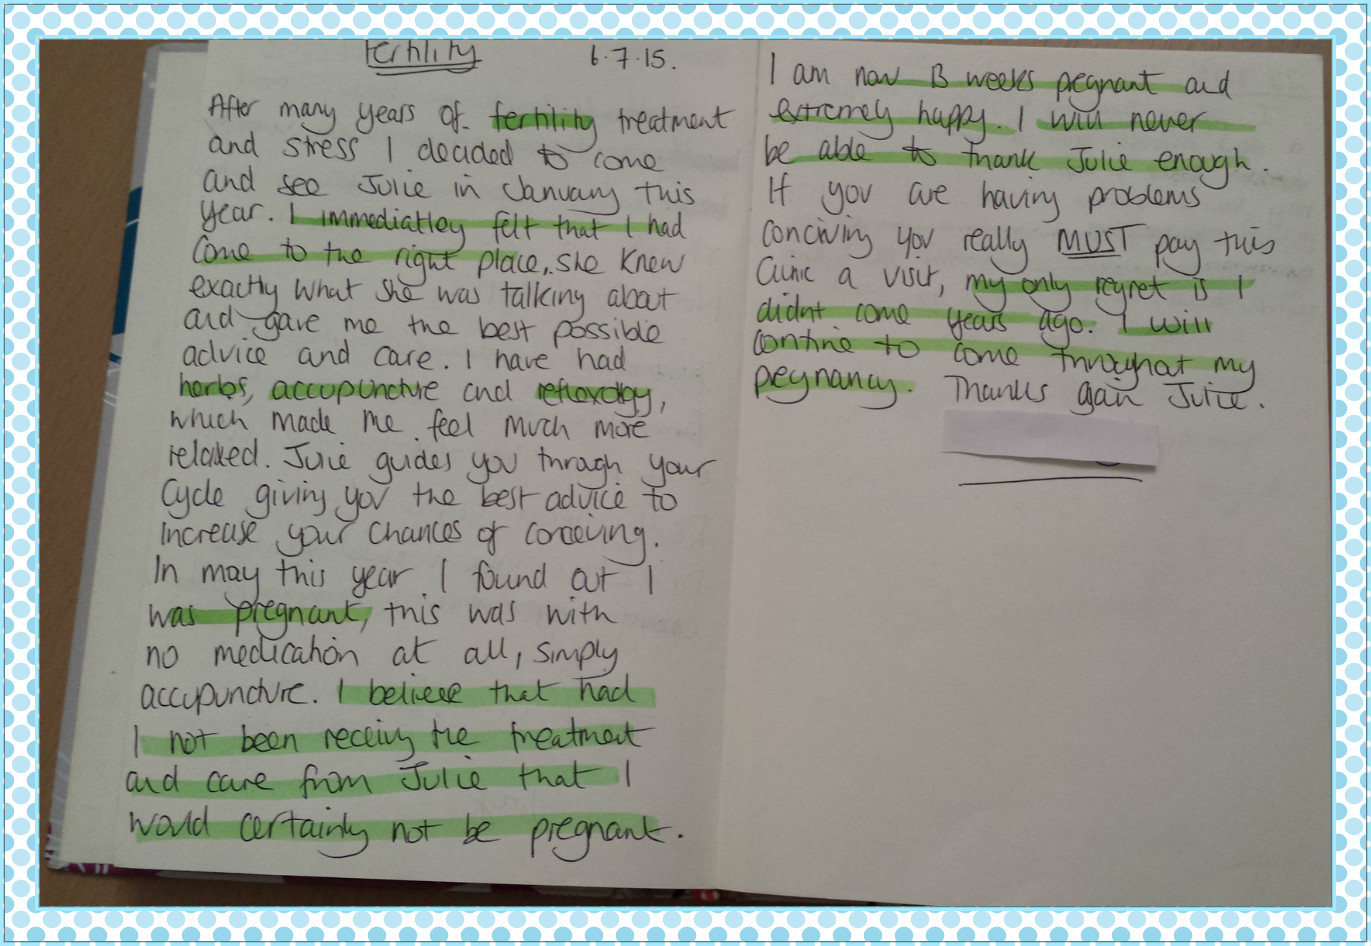 Fertility 6.7.15.
After many years of fertility treatment
and stress I decided to come
and see Julie in January this
year. I immediatley felt that I had
come to the right place, she knew
exactly what she was talking about
and gave me the best possible
advice and care. I have had
herbs, accupuncture and reflexolgy,
which made me feel much more
relaxed. Julie guides you through your
cycle giving you the best advice to
increase your chances of conceiving.
In may this year I found out I
was pregnant, this was with
no medication at all, simply
accupuncture. I believe that had
I not been receiving the treatment
and care from Julie that I
would certainly not be pregnant.
I am now 13 weeks pregnant and
extremely happy. I will never
be able to thank Julie enough.
If you are having problems
conciving you really MUST pay this
clinic a visit, my only regret is I
didnt come years ago. I will
contine to come throughout my
pregnancy. Thanks gain Julie.